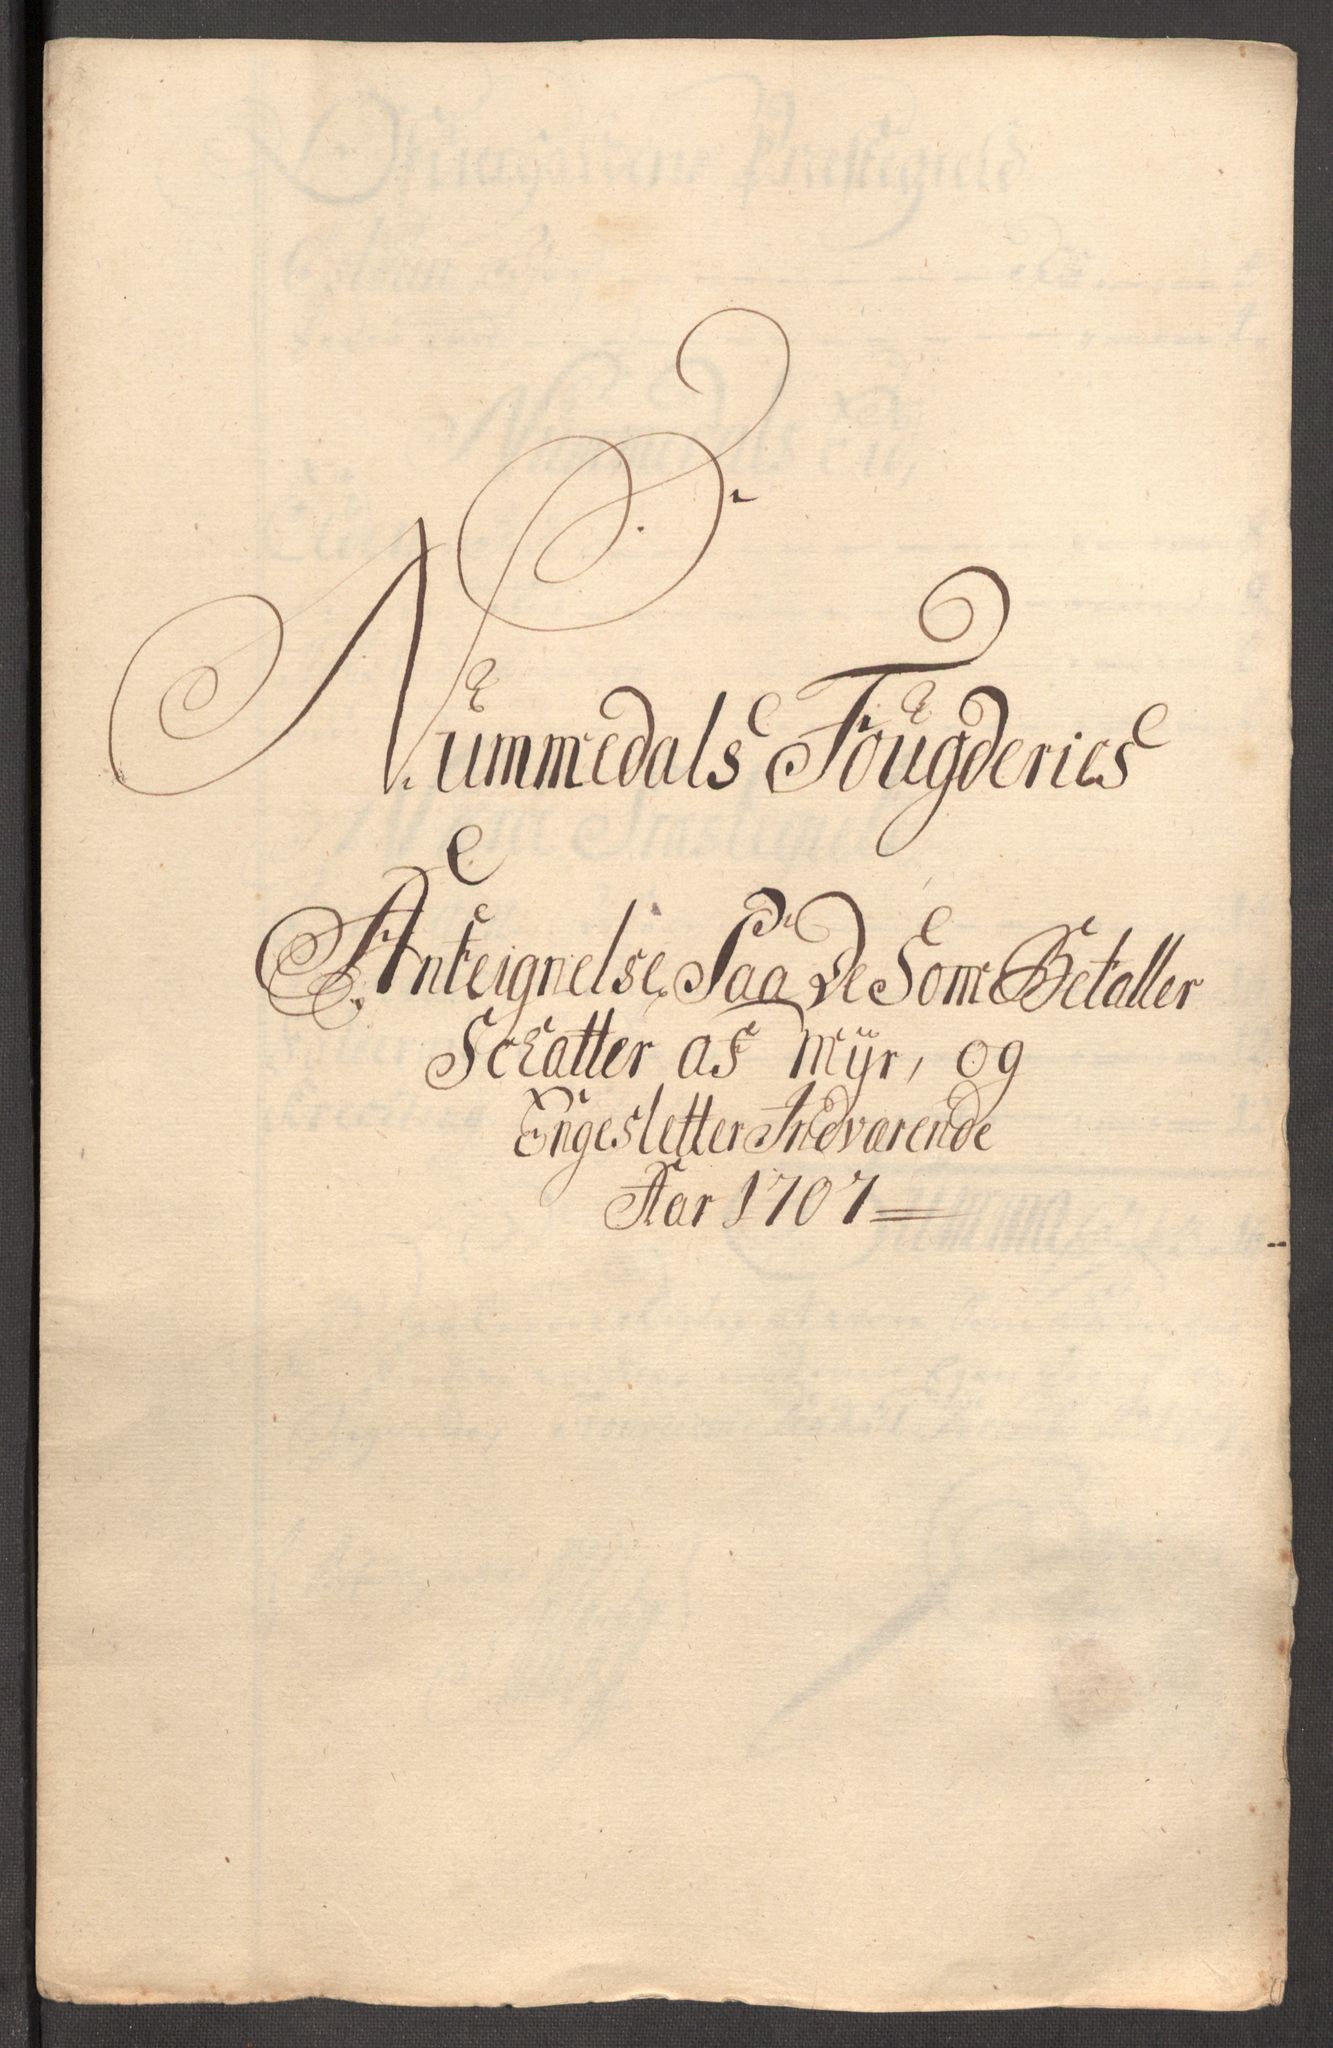 Nummedals Fougderies
Anteignelse, Paa de Som Betaller
Schatter af Myr, og
Engesletter Indværende
Aar 1707